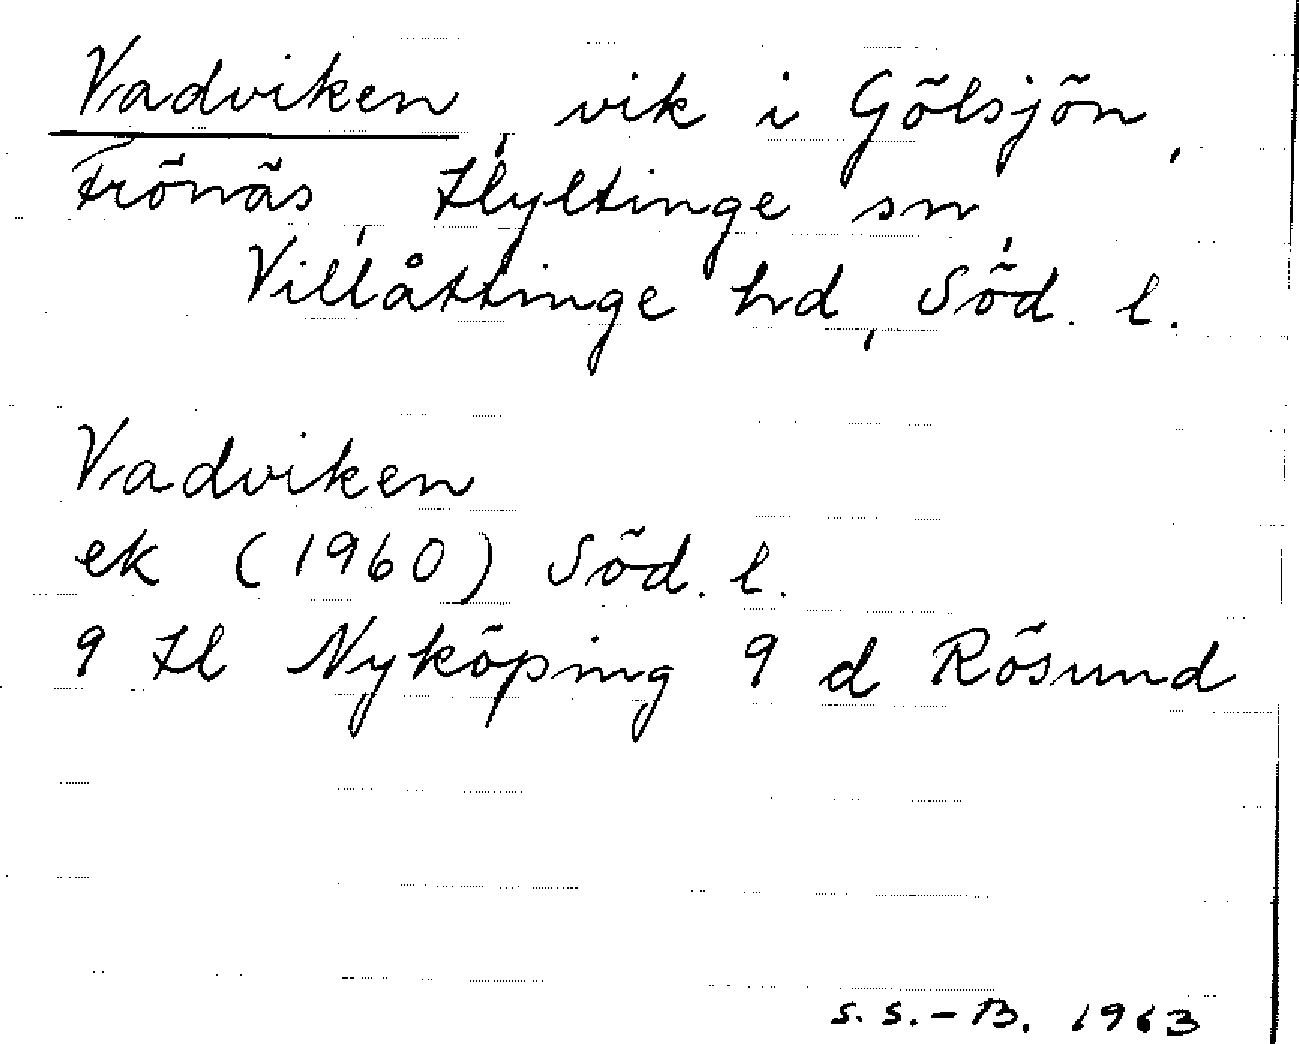 Vadviken, vik i Gölsjön,
Frönäs, Hyltinge sn,
Villåttinge hd, Söd. l.
Vadviken
ek (1960) Söd. l.
9 H Nyköping 9 d Rösund
S. S.-B. 1963